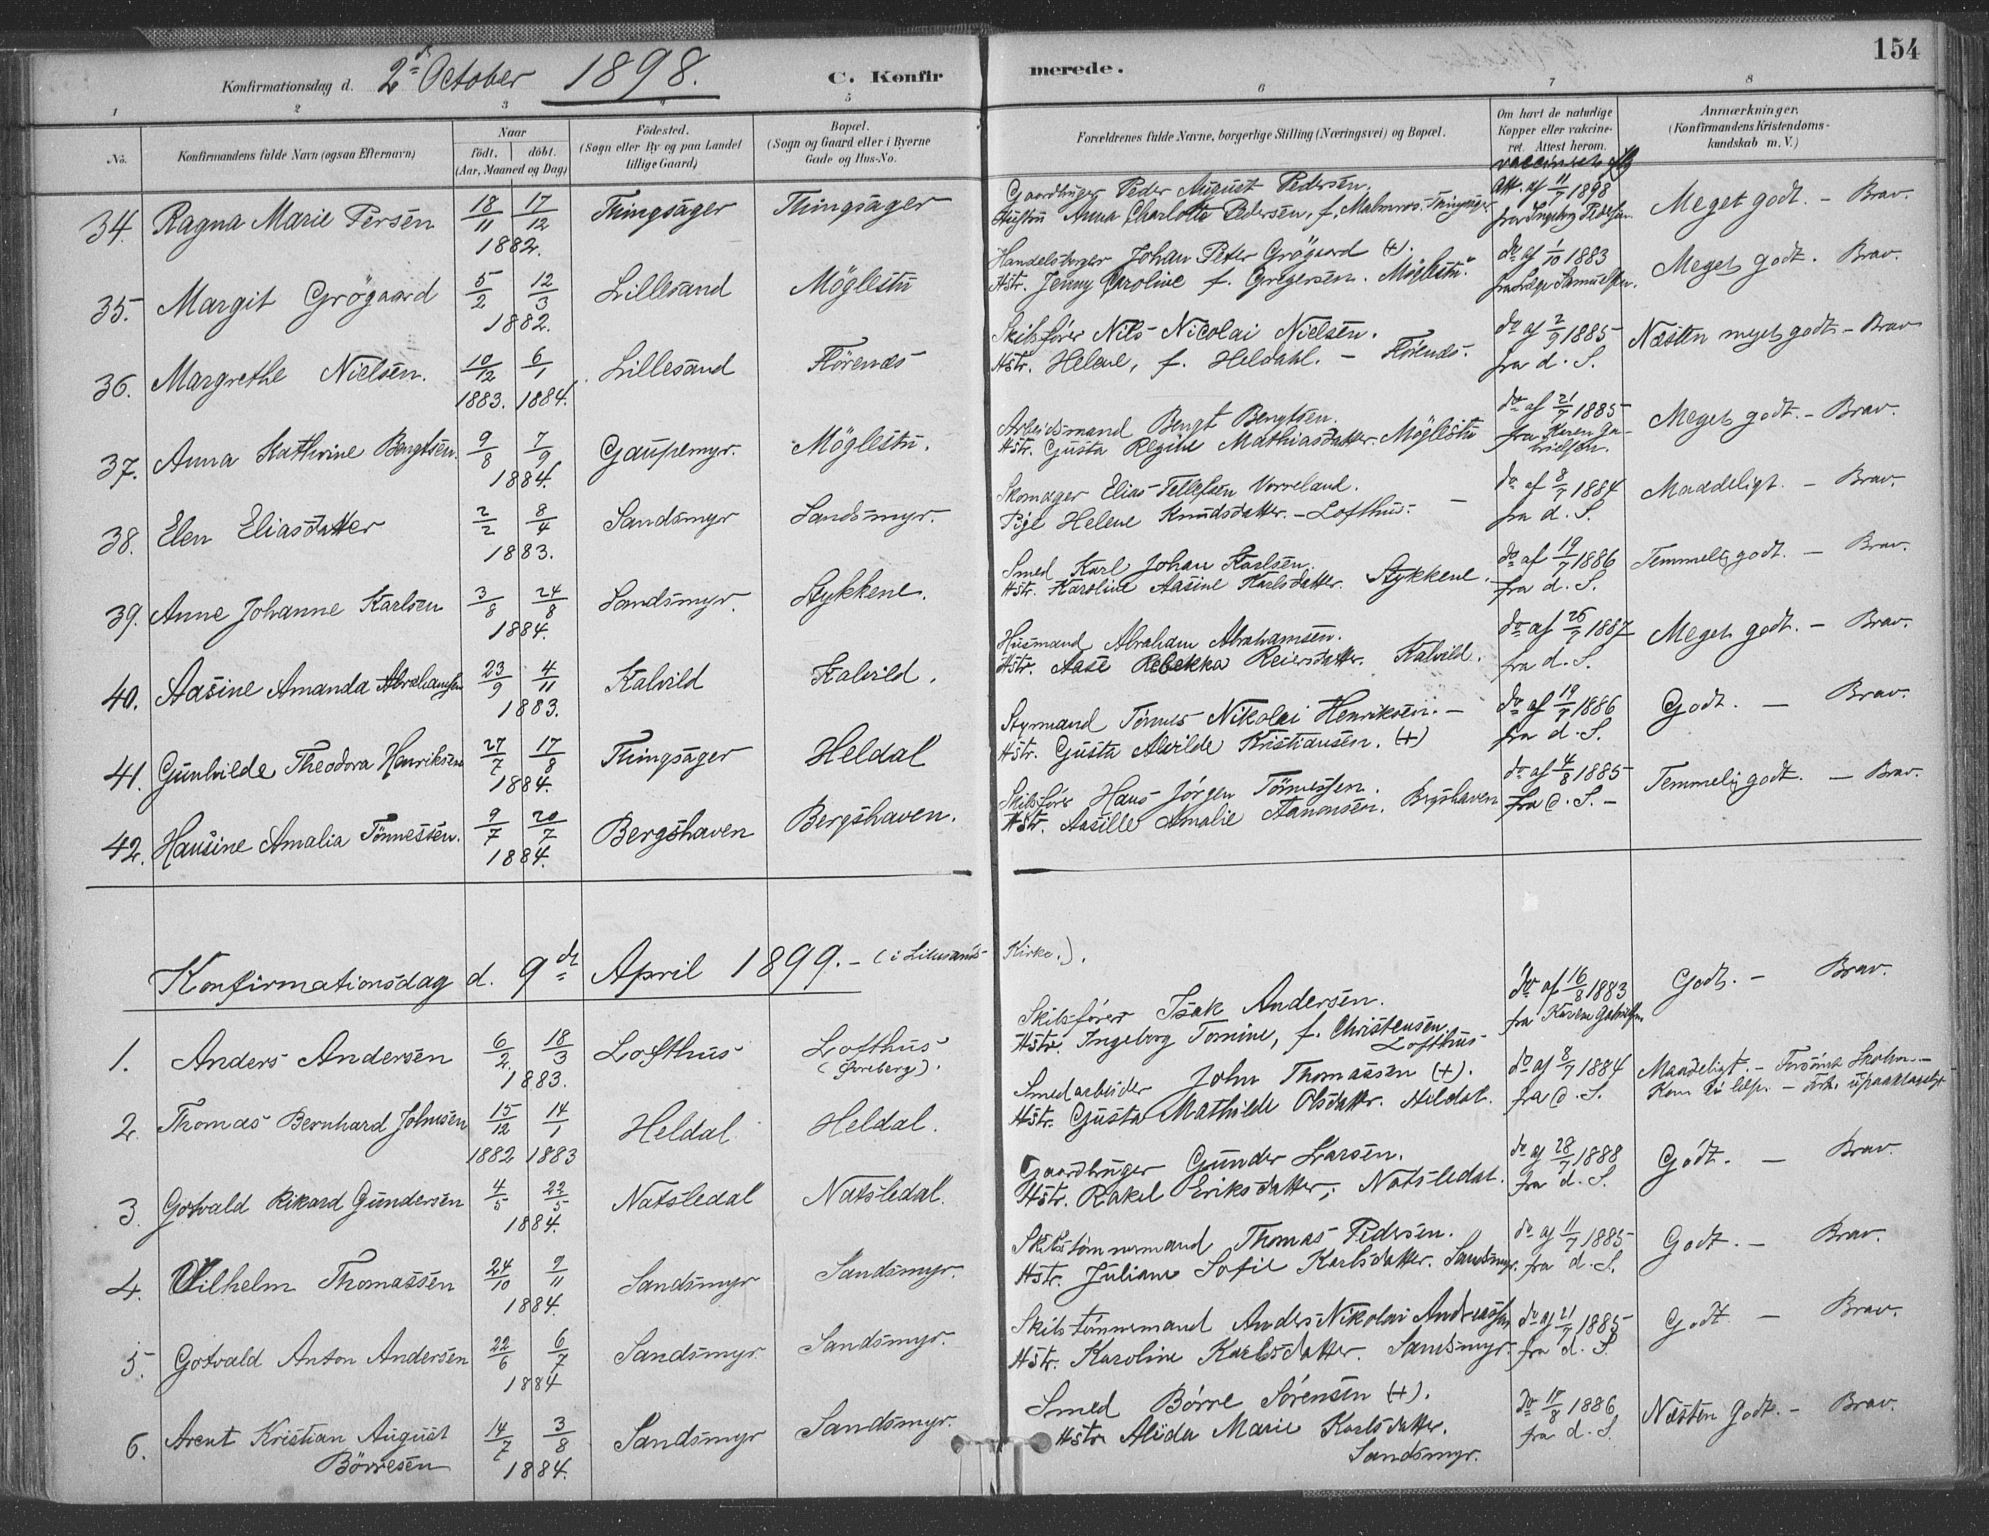 154
Konfirmationsdag d. 2den October 1898. C. Konfirmerede.
1 2 3 4 5 6 7 8
No. Konfirmandens fulde Navn (ogsaa Efternavn)
Naar
født, døbt.
(Aar, Maaned og Dag)
Födested.
(Sogn eller By og paa Landet
tillige Gaard)
Bopæl.
(Sogn og Gaard eller i Byerne
Gade og Hus-No.
Forældrenes fulde Navne, borgerlige Stilling (Næringsvei) og Bopæl.
Om havt de naturlige
Kopper eller vakcine-
ret. Attest herom.
Anmærkninger.
(Konfirmandens Kristendoms-
kundskab m. V.)
34. Ragna Marie Persen 18/11 17/12 1882. Tingsager Tingsager
Gaardbruger Peder August Pedersen.
Hustru Anna Charlotte Pedersen, f. Malmros. Tingsager
Att. af 11/7 1898
fra Ingeborg Pedersen
Meget godt. - Brav.
35. Margit Grögaard 5/2 12/3 1882. Lillesand Möglestu
Handelsborger Johan Peter Grögaard (+).
Hstr. Jenny Caroline f. Gregersen. Möglestu.
do af 1/10 1883
fra Læge Samuelsen.
Meget godt. Brav.
36. Margrethe Nielsen. 10/12 1883. 6/1 1884. Lillesand Flörenæs
Skibsfører Nils Nicolai Nielsen.
Hstr. Helene, f. Heldahl. - Flörenæs.
do af 2/9 1885
fra d. S.
Næsten meget godt - Brav
37. Anna Kathrine Bengtsen. 9/8 7/9 1884. Gaupemyr. Möglestu.
Arbeidsmand Bengt Bengtsen.
Hstr. Gusta Regine Mathiasdatter. Möglestu
do af 21/7 1885
fra Karen Ga-
brielsen.
Meget godt. - Brav.
38. Elen Eliasdatter 2/2 8/4 1883. Sandsmyr Sandsmyr.
Skomager Elias Tellefsen Vorreland.
Pige Helene Knudsdatter. - Lofthus. -
do af 8/7 1884
fra d. S.
Maadeligt. - Brav.
39. Anne Johanne Karlsen 3/8 24/8 1884. Sandsmyr. Stykkene.
Smed Karl Johan Karlsen.
Hstr. Karoline Aasine Karlsdatter. Stykkene.
do af 19/7 1886
fra d. S.
Temmelig godt. - Brav.
40. Aasine Amanda Abrahamsen 23/9 4/11 1883. Kalvild Kalvild.
Husmand Abraham Abrahamsen.
Hstr. Aase Rebekka Reiersdatter. Kalvild.
do af 26/7 1887
fra d. S.
Meget godt. - Brav.
41. Gunhilde Theodora Henriksen 27/7 17/8 1884. Tingsager Heldal
Styrmand Tönnes Nikolai Henriksen. -
Hstr. Gusta Alvilde Kristiansen. (+)
do af 19/7 1886
fra d. S.
Godt. - Brav.
42. Hansine Amalia Tönnessen. 9/7 20/7 1884. Bergshaven Bergshaven.
Skibsfører Hans Jørgen Tönnessen.
Hstr. Aasille Amalie Aanonsen. Bergshaven
do af 4/8 1885
fra d. S. -
Temmelig godt. - Brav.
Konfirmationsdag d. 9de April 1899. - (i Lillesands Kirke.).
1. Anders Andersen 6/2 18/3 1883. Lofthus Lofthus
Skibsfører Isak Andersen.
Hstr. Ingeborg Tomine, f. Christensen.
Lofthus
do af 16/8 1883
fra Karen Gabrielsen
Godt. - Brav.
2. Thomas Bernhard Johnsen 15/12 1882 14/1 1883 Heldal Heldal.
Smedarbeider John Thomassen (+).
Hstr. Gusta Mathilde Olsdatter. Heldal.
do af 8/7 1884
fra d. S.
Maadeligt. -
3. Gotvald Rikard Gundersen 4/5 22/5 1884. Natsledal Natsledal.
Gaardbruger Gunder Larsen.
Hstr. Rakel Eriksdatter; Natsledal.
do af 28/7 1888
fra d. S.
Godt. - Brav.
4. Vilhelm Thomassen 24/10 9/11 1884. Sandsmyr Sandsmyr.
Skibstömmermand Thomas Pedersen.
Hstr. Juliane Sofie Karlsdatter. Sandsmyr.
do af 11/7 1885
fra d. S.
Godt. - Brav.
5. Gotvald Anton Andersen 22/6 6/7 1884 Sandsmyr. Sandsmyr.
Skibstömmermand Anders Nikolai Andreassen
Hstr. Karoline Karlsdatter. Sandsmyr.
do af 21/7 1885
fra d. S.
Godt - Brav.
6. Arent Kristian August
Börresen 14/7 3/8 1884. Sandsmyr Sandsmyr.
Smed Börre Sörensen (+).
Hstr. Alida Marie Karlsdatter.
Sandsmyr.
do 18/8 1886
fra d. S.
Næsten Godt. - Brav.